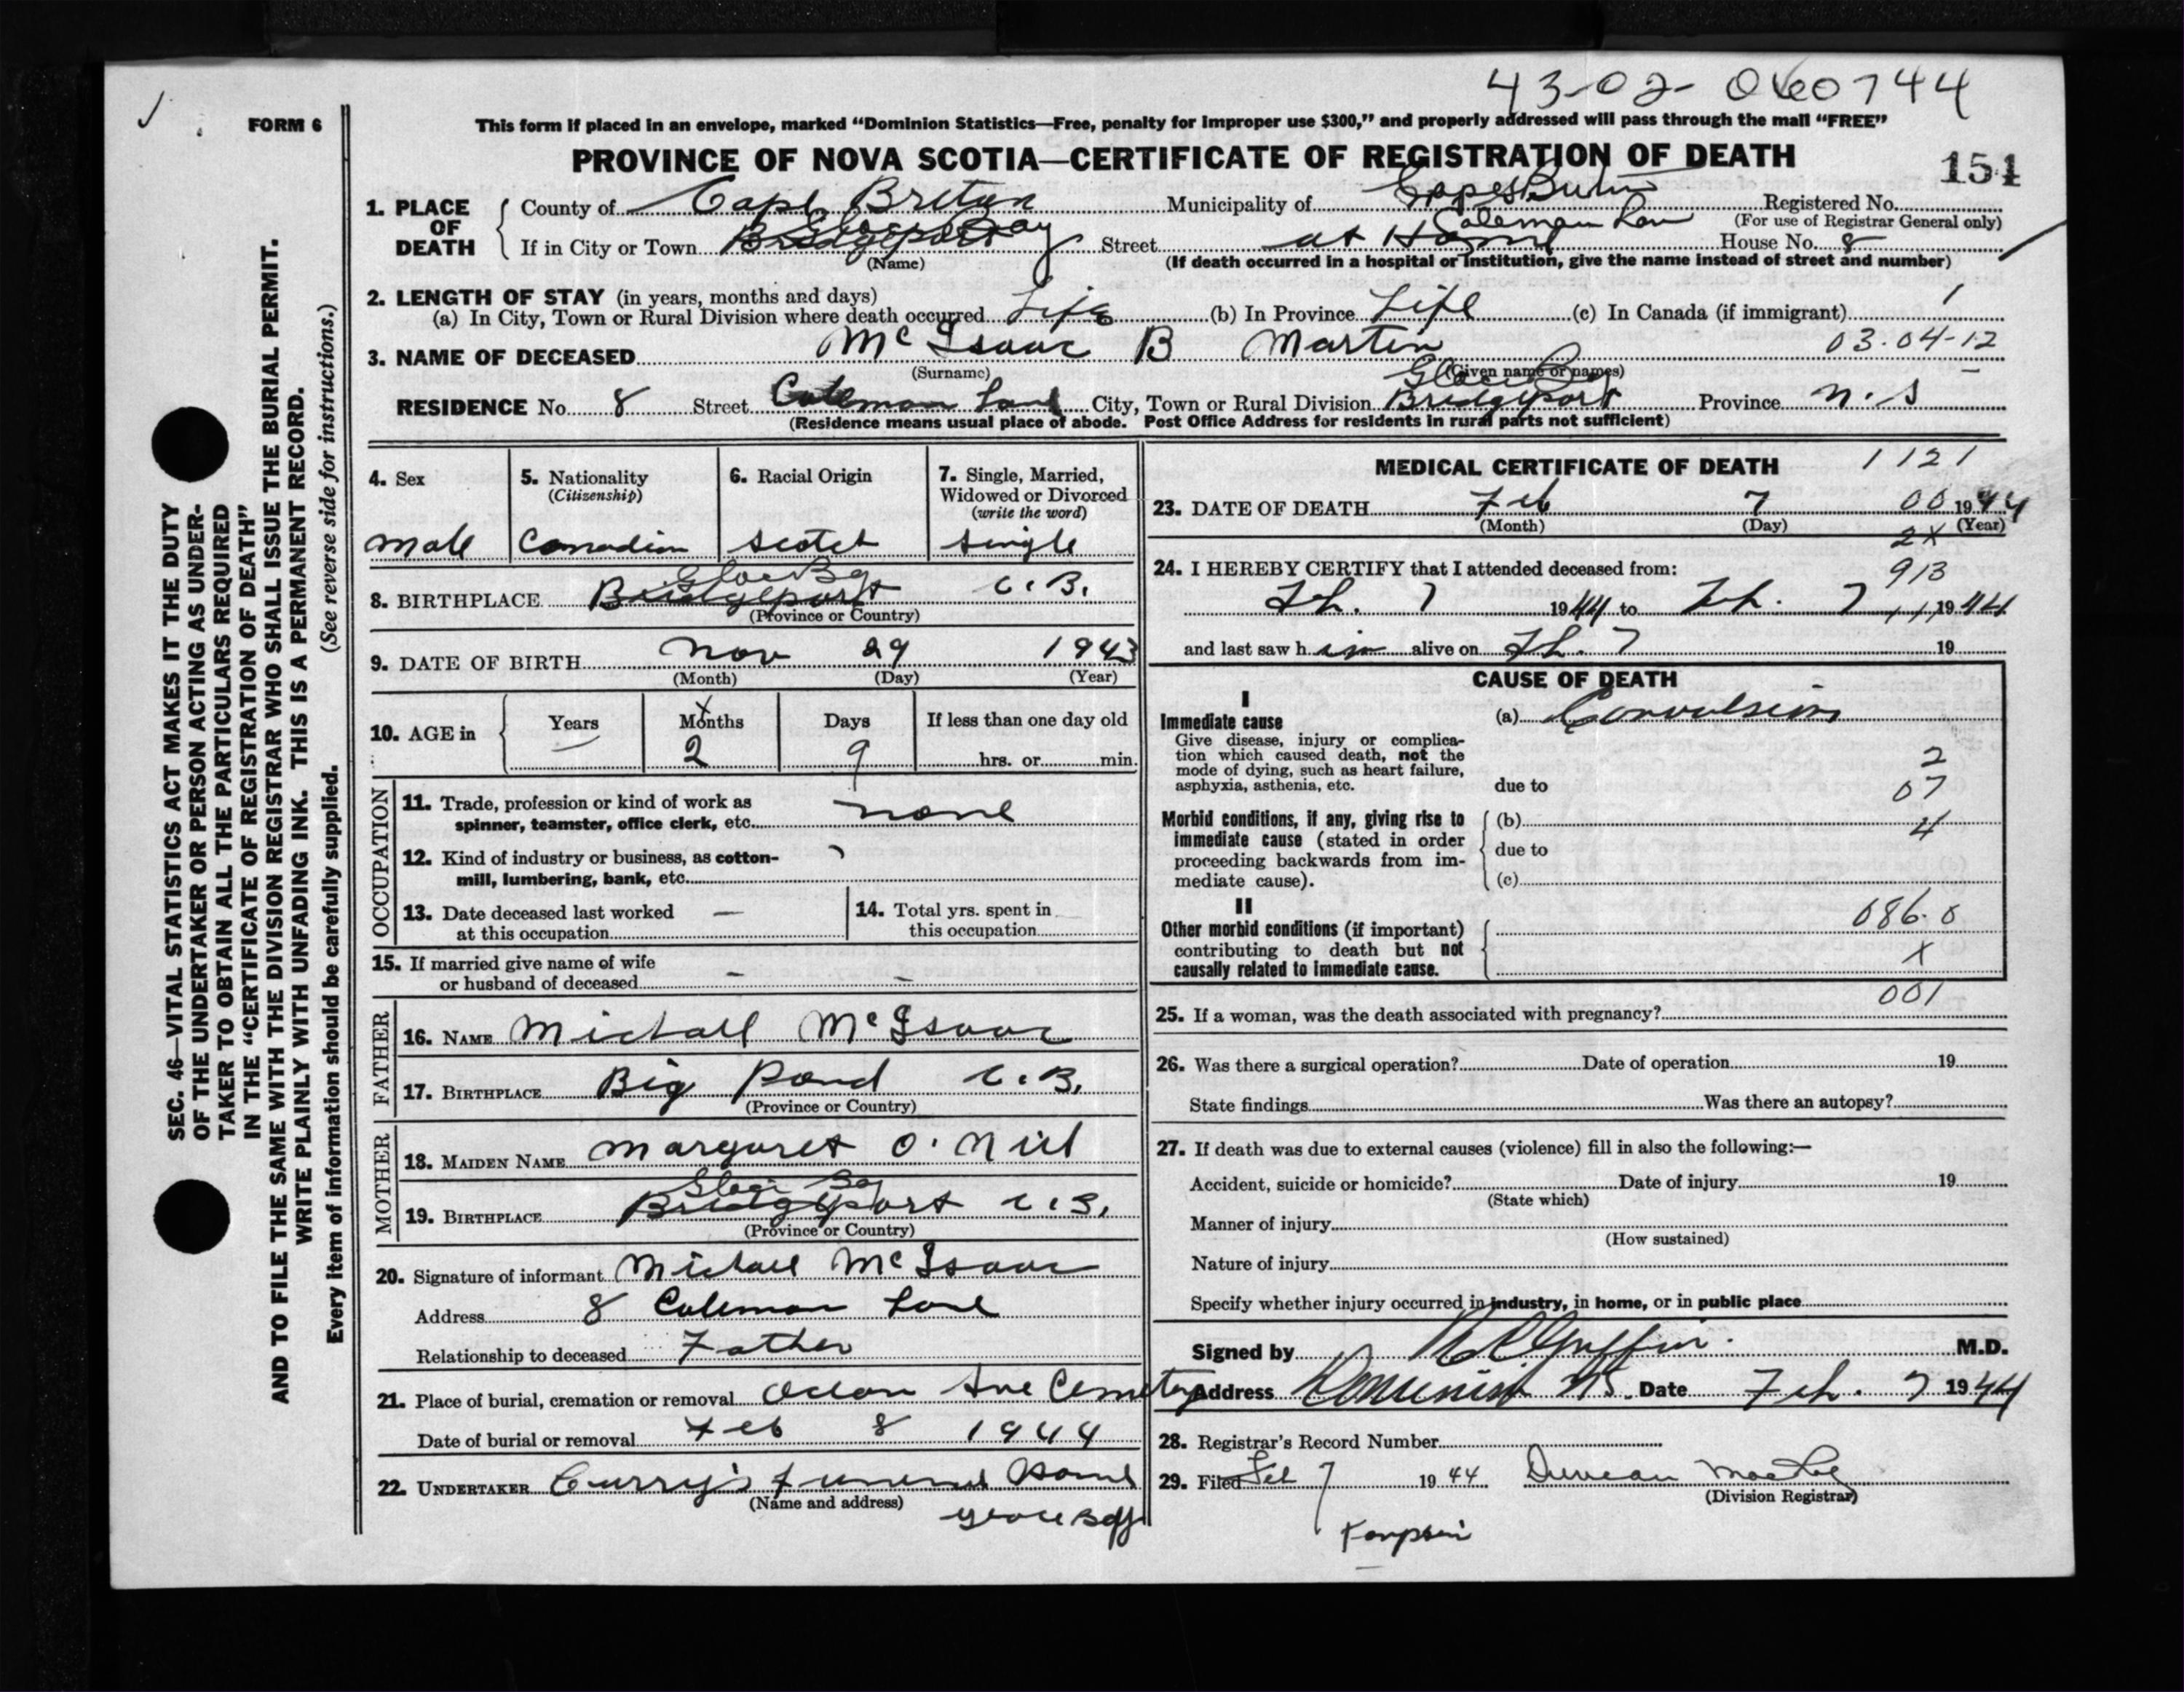 43-02- 060744
FORM 6
This form if placed in an envelope, marked "Dominion Statistics—Free, penalty for improper use $300," and properly addressed will pass through the mail "FREE"
PROVINCE OF NOVA SCOTIA—CERTIFICATE OF REGISTRATION OF DEATH
151
1. PLACE OF DEATH
County of Cape Breton Municipality of Registered No.
(For use of Registrar General only)
If in City or Town Bridgeport Glace Bay Street at Home Coleman Lane House No. 8
(Name) (If death occurred in a hospital or institution, give the name instead of street and number)
2. LENGTH OF STAY (in years, months and days)
(a) In City, Town or Rural Division where death occurred Life (b) In Province Life (c) In Canada (if immigrant) 1
3. NAME OF DECEASED McIsaac B Martin 03-04-12
(Surname) (Given name or names)
RESIDENCE No. 8 Street Coleman Lane City, Town or Rural Division Bridgeport Glace Bay Province N.S
(Residence means usual place of abode. Post Office Address for residents in rural parts not sufficient)
4. Sex
male
5. Nationality
(Citizenship)
Canadian
6. Racial Origin
Scotch
7. Single, Married,
Widowed or Divorced
(write the word)
Single
8. BIRTHPLACE Bridgeport Glace Bay C.B.
(Province or Country)
9. DATE OF BIRTH Nov 29 1943
(Month) (Day) (Year)
10. AGE in
Years Months Days If less than one day old
— 2 9 hrs. or min.
OCCUPATION
11. Trade, profession or kind of work as
spinner, teamster, office clerk, etc. none
12. Kind of industry or business, as cotton-
mill, lumbering, bank, etc.
13. Date deceased last worked —
at this occupation
14. Total yrs. spent in
this occupation
15. If married give name of wife
or husband of deceased — —
FATHER
16. NAME Michael McIsaac
17. BIRTHPLACE Big Pond C.B.
(Province or Country)
MOTHER
18. MAIDEN NAME Margaret O'Neil
19. BIRTHPLACE Bridgeport Glace Bay C.B.
(Province or Country)
20. Signature of informant Michael McIsaac
Address 8 Coleman Lane
Relationship to deceased Father
21. Place of burial, cremation or removal Ocean Ave Cemetery
Date of burial or removal Feb 8 1944
22. UNDERTAKER Curry's Funeral Home
(Name and address) Glace Bay
MEDICAL CERTIFICATE OF DEATH 1121
23. DATE OF DEATH Feb 7 00 1944
(Month) (Day) (Year)
2X
24. I HEREBY CERTIFY that I attended deceased from: 913
Feb. 7 1944 to Feb. 7 1944
and last saw him alive on Feb. 7 19
CAUSE OF DEATH
I
Immediate cause
Give disease, injury or complica-
tion which caused death, not the
mode of dying, such as heart failure,
asphyxia, asthenia, etc.
(a) Convulsions
2
due to 07
Morbid conditions, if any, giving rise to
immediate cause (stated in order
proceeding backwards from im-
mediate cause).
(b) 4
due to
(c)
II
Other morbid conditions (if important)
contributing to death but not
causally related to immediate cause.
086.0
X
001
25. If a woman, was the death associated with pregnancy?
26. Was there a surgical operation? Date of operation 19
State findings Was there an autopsy?
27. If death was due to external causes (violence) fill in also the following:—
Accident, suicide or homicide? Date of injury 19
(State which)
Manner of injury
(How sustained)
Nature of injury
Specify whether injury occurred in industry, in home, or in public place
Signed by Griffin M.D.
Address Dominion NS. Date Feb. 7 1944
28. Registrar's Record Number
29. Filed Feb 7 1944 Duncan
(Division Registrar)
SEC. 46—VITAL STATISTICS ACT MAKES IT THE DUTY
OF THE UNDERTAKER OR PERSON ACTING AS UNDER-
TAKER TO OBTAIN ALL THE PARTICULARS REQUIRED
IN THE "CERTIFICATE OF REGISTRATION OF DEATH"
AND TO FILE THE SAME WITH THE DIVISION REGISTRAR WHO SHALL ISSUE THE BURIAL PERMIT.
WRITE PLAINLY WITH UNFADING INK. THIS IS A PERMANENT RECORD.
Every item of information should be carefully supplied. (See reverse side for instructions.)